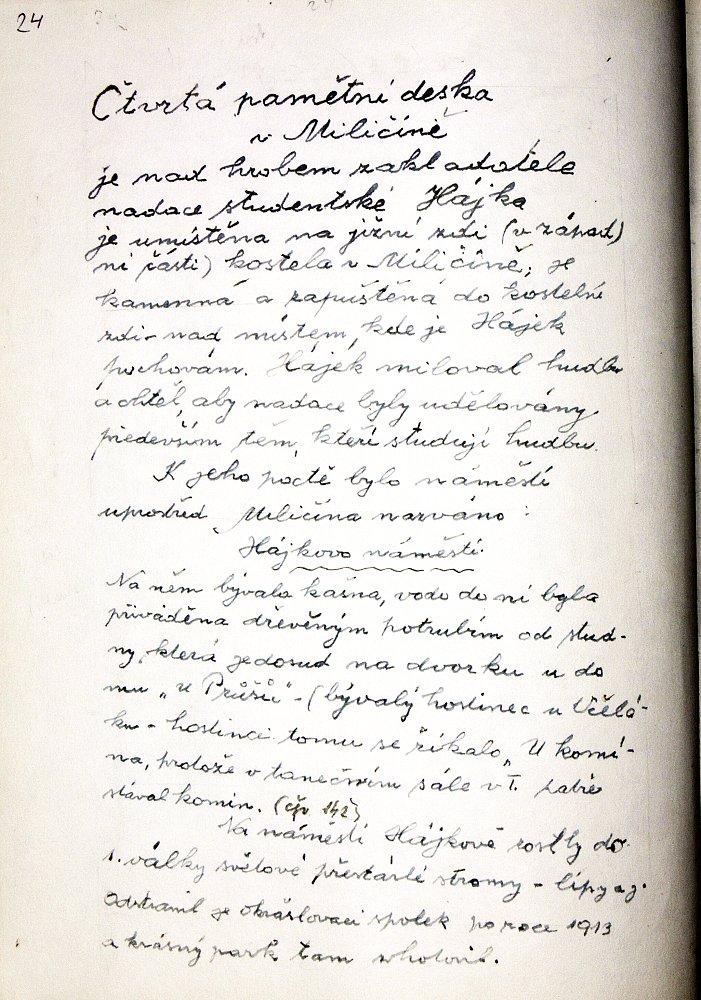 24
Čtvrtá pamětní deska
v Miličíně
je nad hrobem zakladatele
nadace studentské Hájka
je umístěna na jižní zdi (v západ)
ní části) kostela v Miličíně, je
kamenná a zapuštěná do kostelní
zdi - nad místem, kde je Hájek
pochován. Hájek miloval hudbu
a chtěl, aby nadace byly udělovány
především těm, kteří studují hudbu.
K jeho poctě bylo náměstí
uprostřed Miličína nazváno:
Hájkovo náměstí.
Na něm bývala kašna, voda do ní byla
přiváděna dřevěným potrubím od stud-
ny, která je dosud na dvorku u do
mu „u Průšů" - (bývalý hostinec u Včelá-
ků - hostinci tomu se říkalo „U komí-
na, protože v tanečním sále v I. patře
stával komín. (čp 142)
Na náměstí Hájkově rostly do
1. války světové přestárlé stromy - lípy a j.
Odstranil je okrašlovací spolek po roce 1913
a krásný park tam zhotovil.